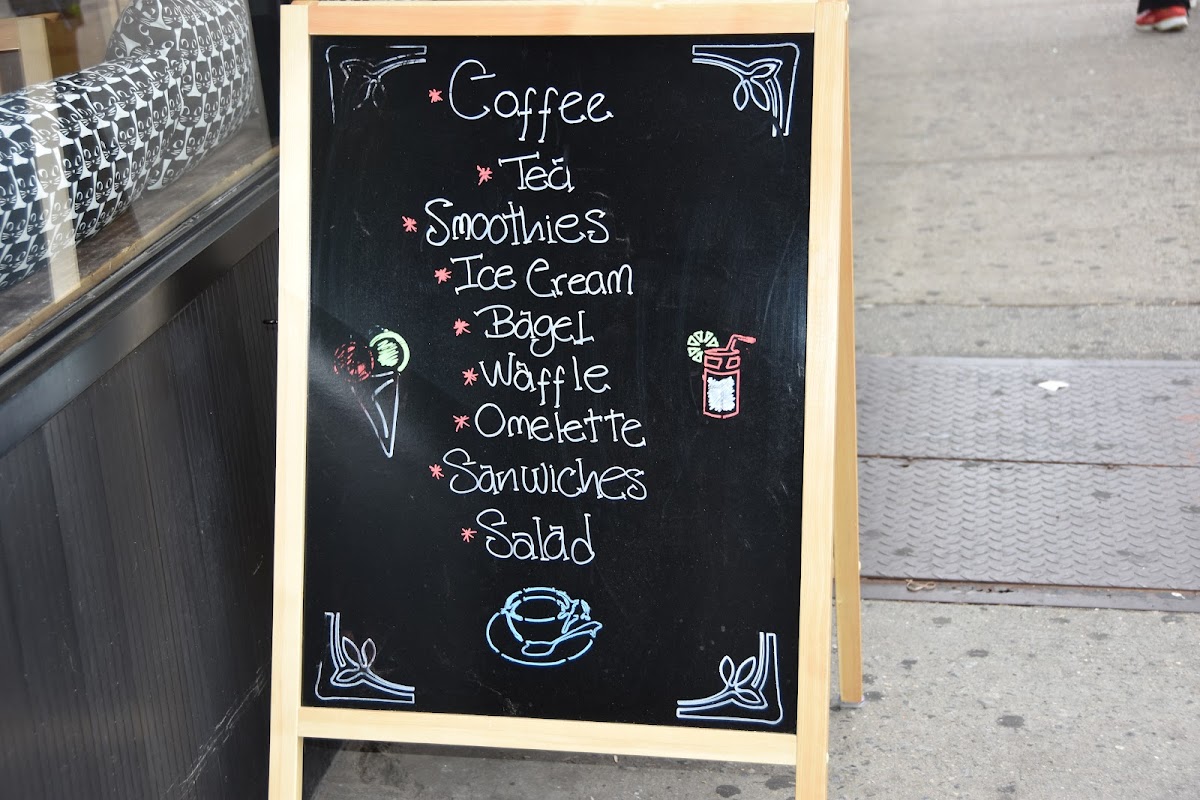 * Coffee
* Tea
* Smoothies
* Ice Cream
* Bagel
* Waffle
* Omelette
* Sanwiches
* Salad